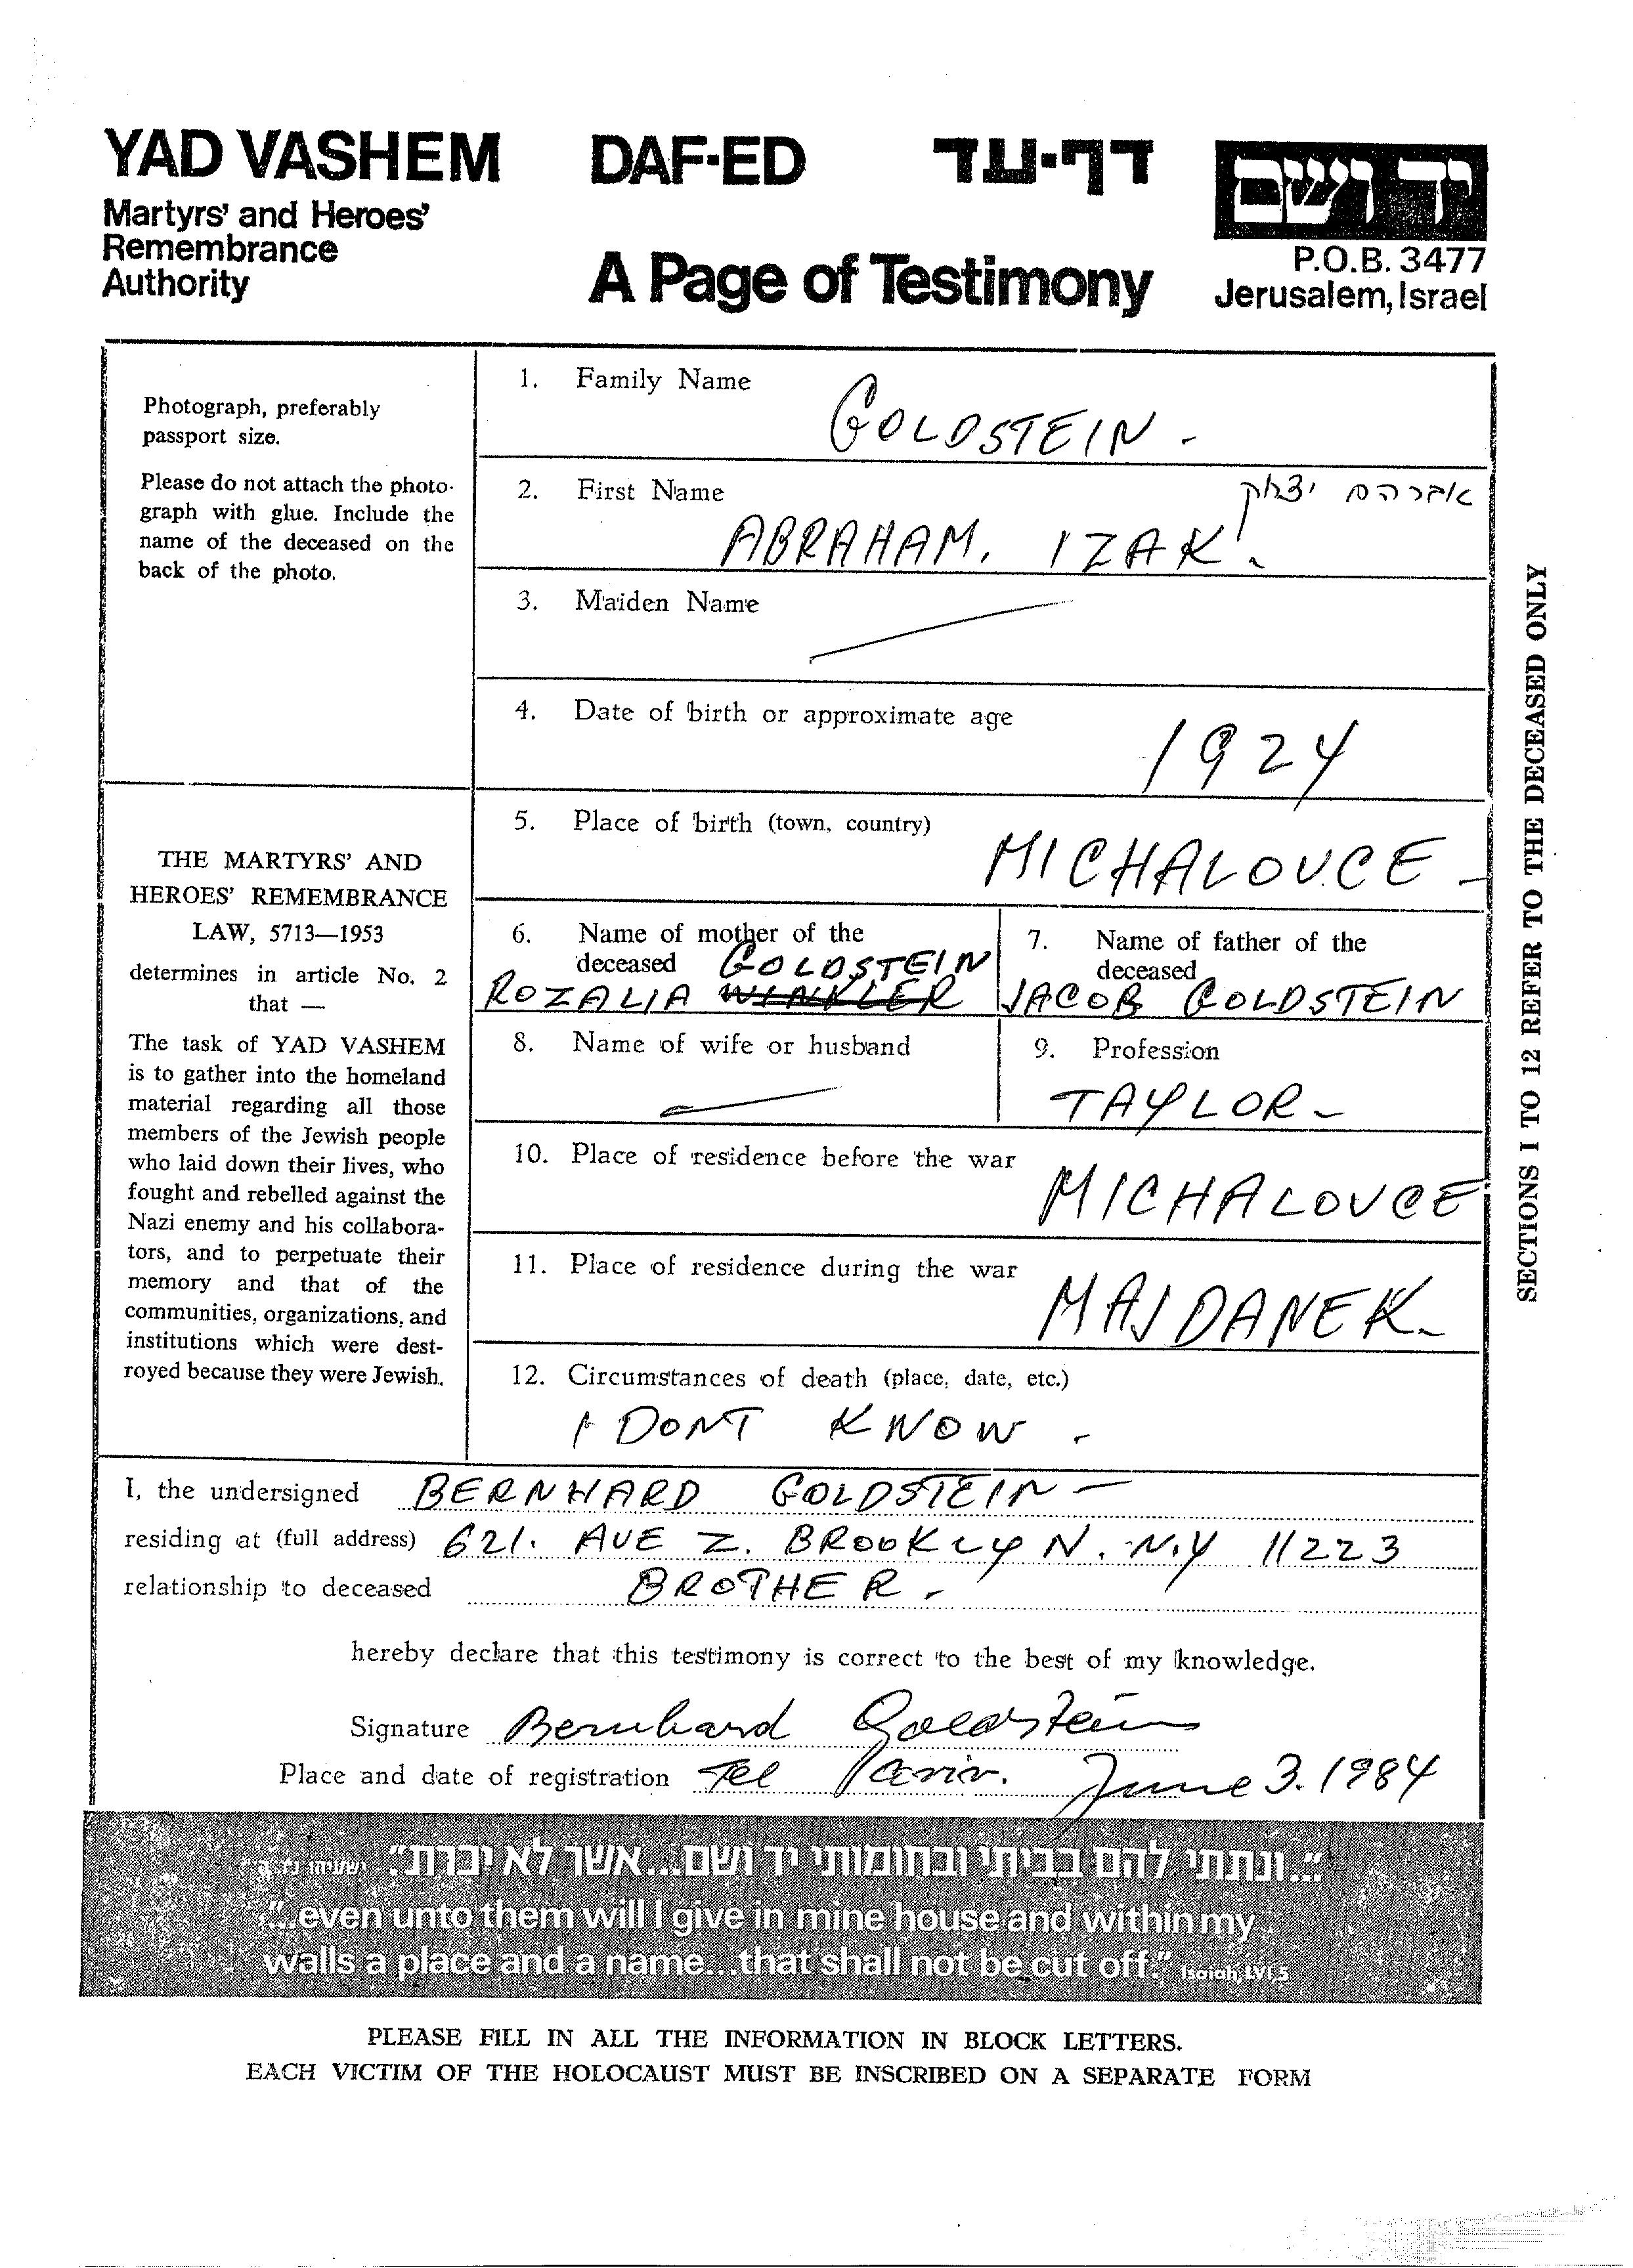 YAD VASHEM
Martyrs' and Heroes'
Remembrance
Authority
DAF-ED
דף-עד
A Page of Testimony
יד ושם
P.O.B. 3477
Jerusalem, Israel
Photograph, preferably
passport size.
Please do not attach the photo-
graph with glue. Include the
name of the deceased on the
back of the photo.
THE MARTYRS' AND
HEROES' REMEMBRANCE
LAW, 5713—1953
determines in article No. 2
that —
The task of YAD VASHEM
is to gather into the homeland
material regarding all those
members of the Jewish people
who laid down their lives, who
fought and rebelled against the
Nazi enemy and his collabora-
tors, and to perpetuate their
memory and that of the
communities, organizations, and
institutions which were dest-
royed because they were Jewish.
1. Family Name
GOLDSTEIN -
2. First Name
אברהם יצחק
ABRAHAM. IZAK.
3. Maiden Name
4. Date of birth or approximate age
1924
5. Place of birth (town, country)
MICHALOVCE -
6. Name of mother of the
deceased GOLDSTEIN
ROZALIA WINKLER
7. Name of father of the
deceased
JACOB GOLDSTEIN
8. Name of wife or husband
9. Profession
TAYLOR -
10. Place of residence before the war
MICHALOVCE
11. Place of residence during the war
MAJDANEK -
12. Circumstances of death (place, date, etc.)
I DONT KNOW -
SECTIONS 1 TO 12 REFER TO THE DECEASED ONLY
I, the undersigned BERNHARD GOLDSTEIN -
residing at (full address) 621. AVE Z. BROOKLYN. N.Y 11223
relationship to deceased BROTHER -
hereby declare that this testimony is correct to the best of my knowledge.
Signature Bernhard Goldstein
Place and date of registration Tel Aviv. June 3. 1984
"...ונתתי להם בביתי ובחומותי יד ושם...אשר לא יכרת". ישעיהו נ"ו, ה'
"...even unto them will I give in mine house and within my
walls a place and a name...that shall not be cut off." Isaiah, LVI, 5
PLEASE FILL IN ALL THE INFORMATION IN BLOCK LETTERS.
EACH VICTIM OF THE HOLOCAUST MUST BE INSCRIBED ON A SEPARATE FORM